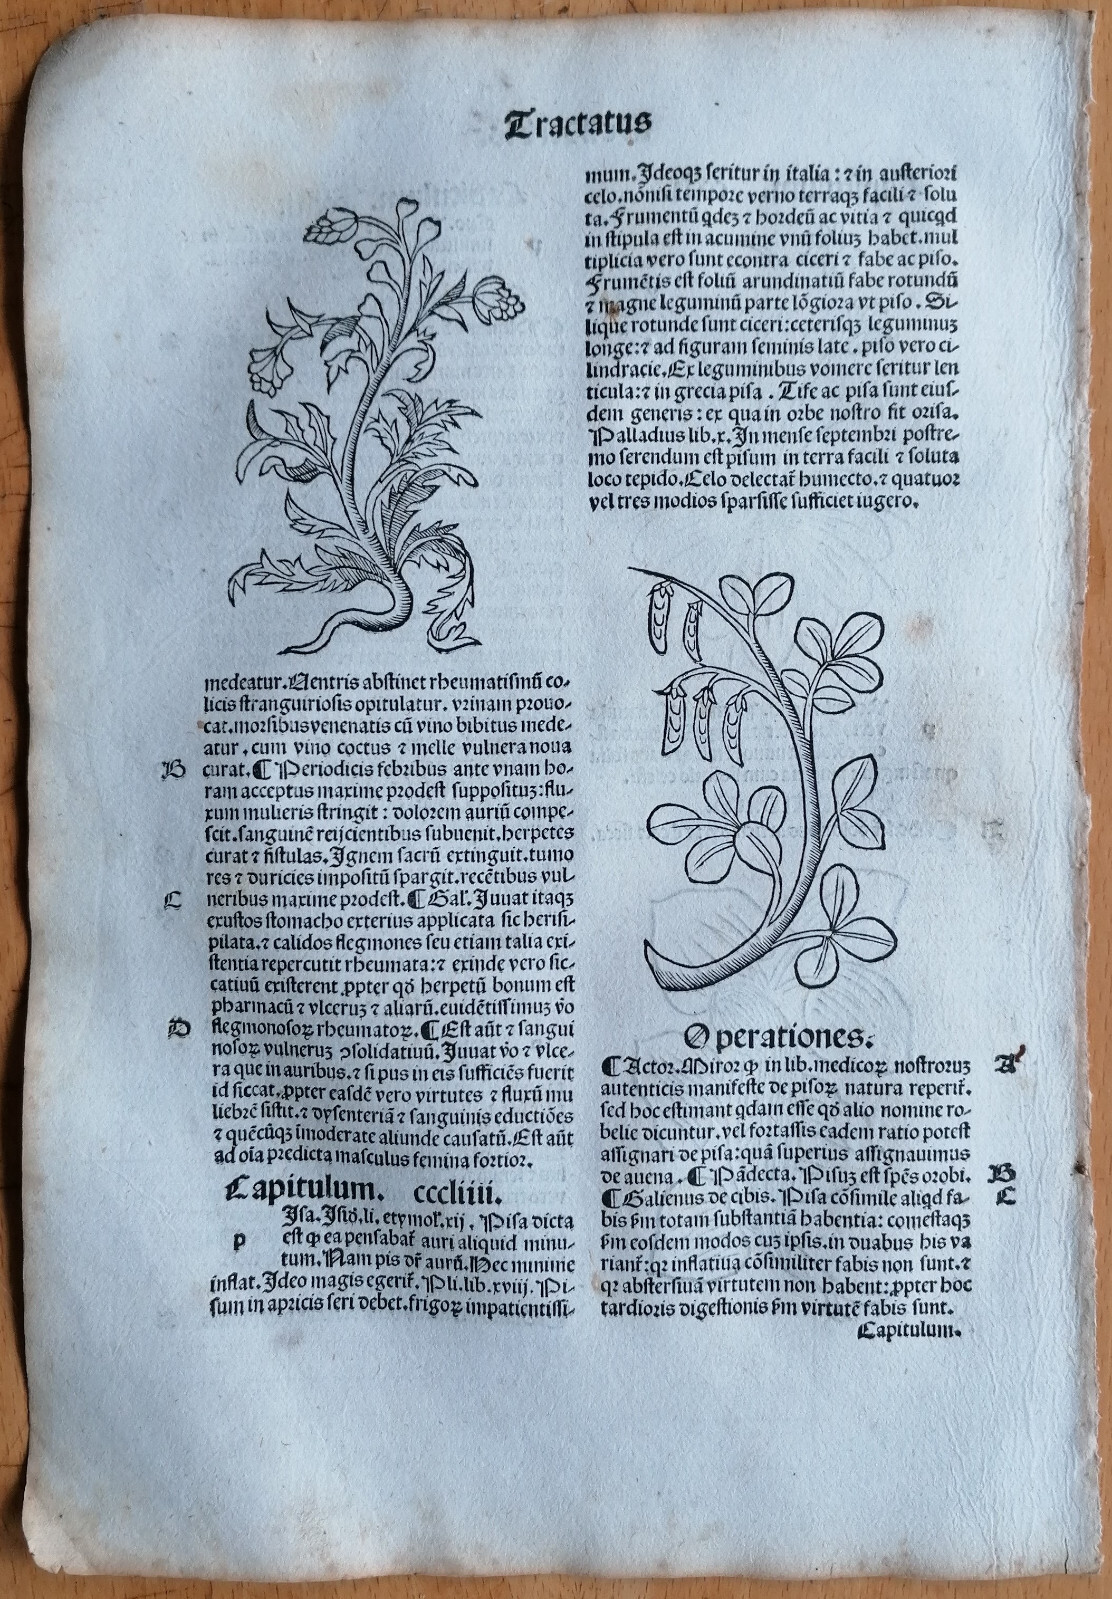 Tractatus
medeatur. Ventris abstinet rheumatismũ co-
licis stranguiriosis opitulatur. vrinam prouo-
cat. morsibus venenatis cũ vino bibitus mede-
atur, cum vino coctus ⁊ melle vulnera noua
B curat. ¶ Periodicis febribus ante vnam ho-
ram acceptus maxime prodest suppositus: flu-
xum mulieris stringit: dolorem auriũ compe-
scit. sanguinẽ reijcientibus subuenit. herpetes
curat ⁊ fistulas. Ignem sacrũ extinguit. tumo
res ⁊ duricies impositũ spargit. recẽtibus vul-
C neribus maxime prodest. ¶ Gal̃. Iuuat itaqꝫ
exustos stomacho exterius applicata sic herisi-
pilata. ⁊ calidos flegmones seu etiam talia exi-
stentia repercutit rheumata: ⁊ exinde vero sic-
catiuũ existerent. ꝓpter qđ herpetũ bonum est
pharmacũ ⁊ vlceruꝫ ⁊ aliarũ. euidẽtissimuꝫ ṽo
D flegmonosoꝝ rheumatoꝝ. ¶ Est aũt ⁊ sangui
nosoꝝ vulneruꝫ ↄsolidatiuũ. Iuuat ṽo ⁊ vlce-
ra que in auribus. ⁊ si pus in eis sufficiẽs fuerit
id siccat. ꝓpter easdẽ vero virtutes ⁊ fluxũ mu
liebrẽ sistit. ⁊ dysenteriã ⁊ sanguinis eductiões
⁊ quẽcũqꝫ ĩmoderate aliunde causatũ. Est aũt
ad oĩa predicta masculus femina fortior.
Capitulum. cccliiii.
Isa. Isid̃. li. etymol̃. xij. Pisa dicta
p est ꝙ ea pensabat̃ auri aliquid minu-
tum. Nam pis dr̃ aurũ. Hec minime
inflat. Ideo magis egerit̃. Pli. lib. xviij. Pi-
sum in apricis seri debet. frigoꝝ impatientissi-
mum. Ideoqꝫ seritur in italia: ⁊ in austeriori
celo. nõnisi tempore verno terraqꝫ facili ⁊ solu
ta. Frumentũ qdeꝫ ⁊ hordeũ ac vitia ⁊ quicqd
in stipula est in acumine vnũ foliuꝫ habet. mul
tiplicia vero sunt econtra ciceri ⁊ fabe ac piso.
Frumẽtis est foliũ arundinatiũ fabe rotundũ
⁊ magne leguminũ parte lõgiora vt piso. Si-
lique rotunde sunt ciceri: ceterisqꝫ leguminuꝫ
longe: ⁊ ad figuram seminis late. piso vero ci-
lindracie. Ex leguminibus vomere seritur len
ticula: ⁊ in grecia pisa. Tife ac pisa sunt eius-
dem generis: ex qua in orbe nostro fit orisa.
Palladius lib. x. In mense septembri postre-
mo serendum est pisum in terra facili ⁊ soluta
loco tepido. Celo delectat̃ humecto. ⁊ quatuor
vel tres modios sparsisse sufficiet iugero.
Operationes.
¶ Actor. Miror ꝙ in lib. medicoꝝ nostroruꝫ A
autenticis manifeste de pisoꝝ natura reperit̃.
sed hoc estimant qdam esse qđ alio nomine ro-
belie dicuntur. vel fortassis eadem ratio potest
assignari de pisa: quã superius assignauimus
de auena. ¶ Pãdecta. Pisuꝫ est spẽs orobi. B
¶ Galienus de cibis. Pisa cõsimile aliqd fa- C
bis ẜm totam substantiã habentia: comestaqꝫ
ẜm eosdem modos cuꝫ ipsis. in duabus his va
riant̃: qꝛ inflatiua cõsimiliter fabis non sunt. ⁊
qꝛ abstersiuã virtutem non habent: ꝓpter hoc
tardioris digestionis ẜm virtutẽ fabis sunt.
Capitulum.